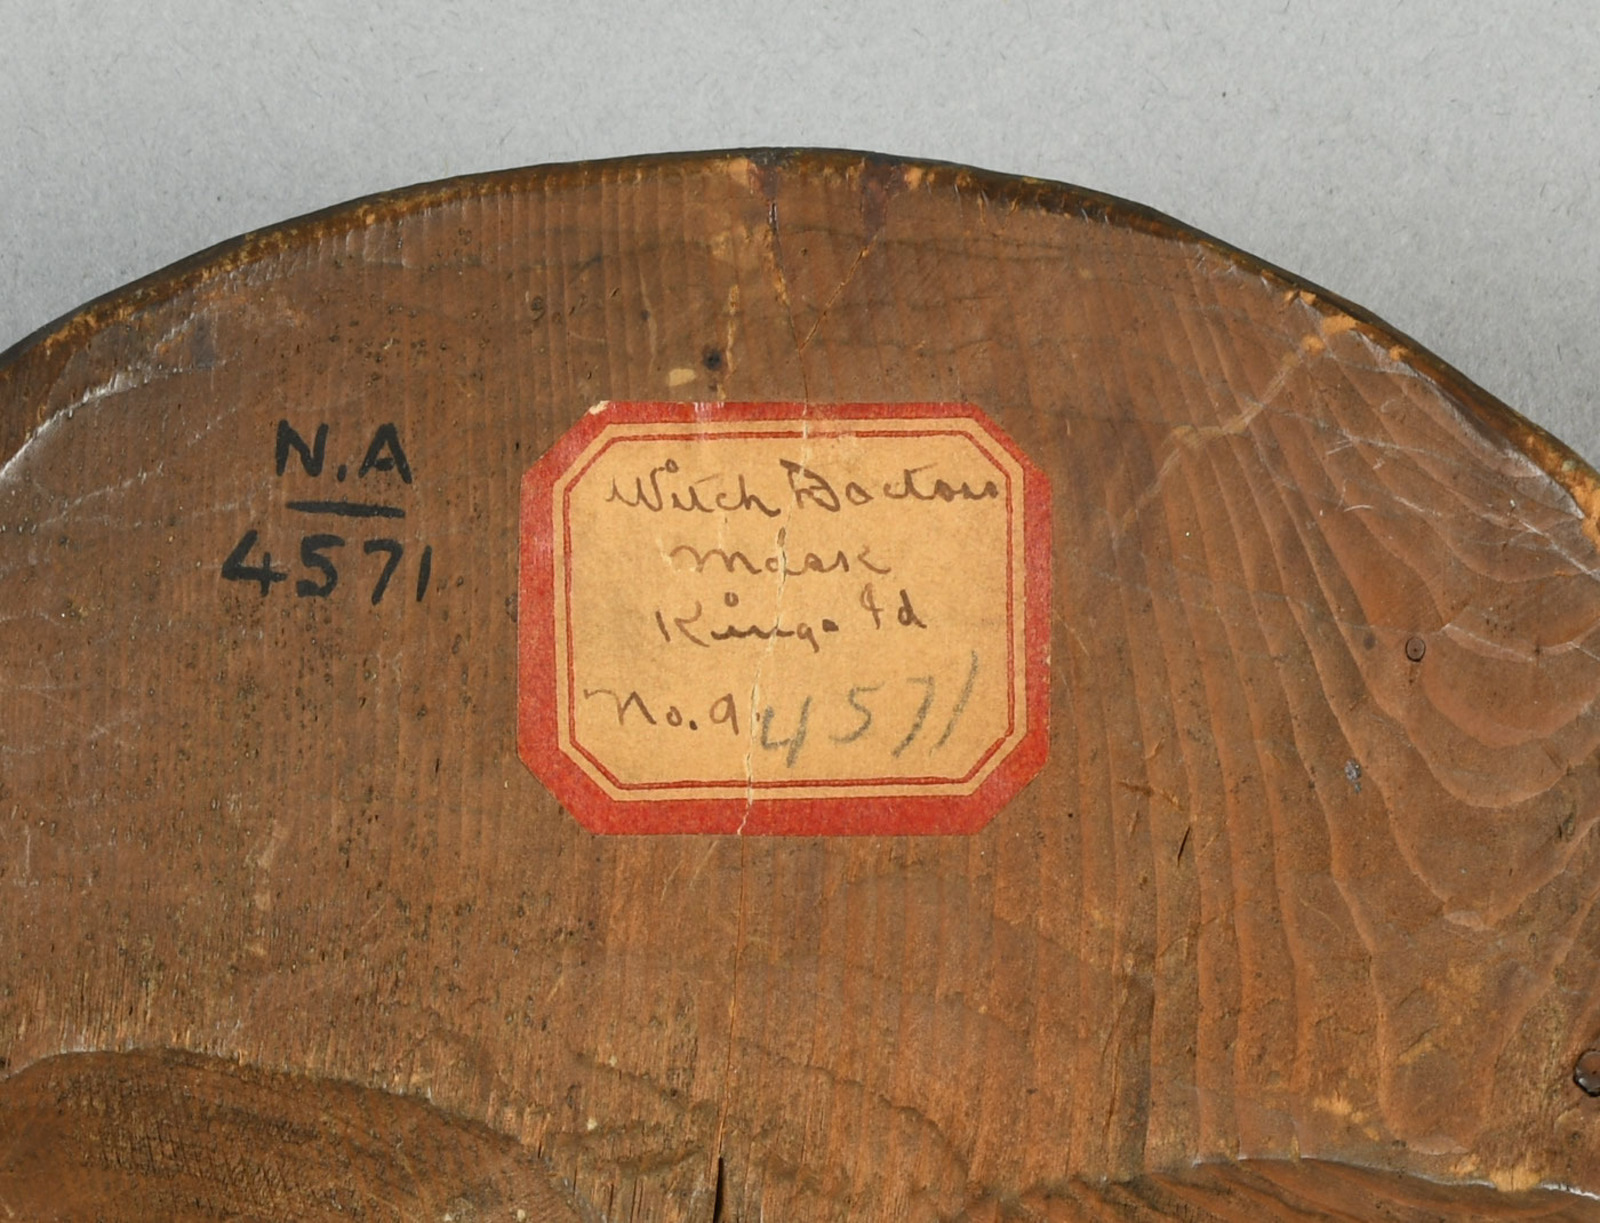 N.A
4571
Witch Doctors
Mask
Kings Id
No. 9. 4571